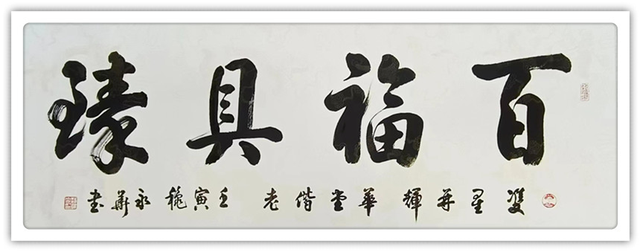 百福具臻
雙星并輝華堂偕老 壬寅 永華書